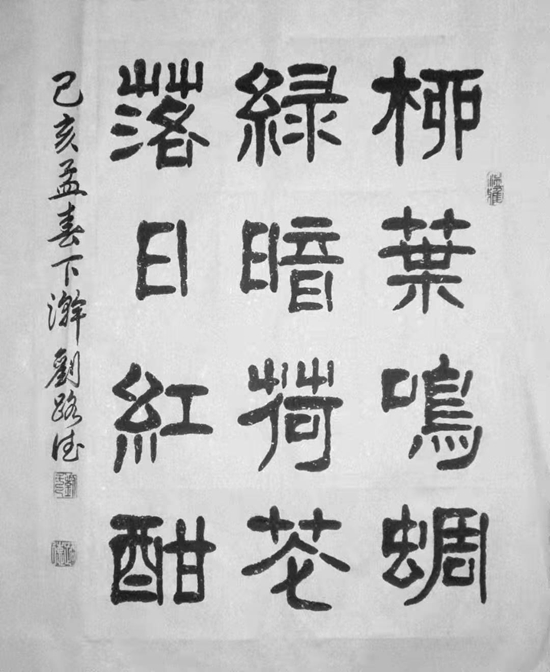 柳葉鳴蜩
緑暗荷花
落日紅酣
己亥孟春下澣劉路德